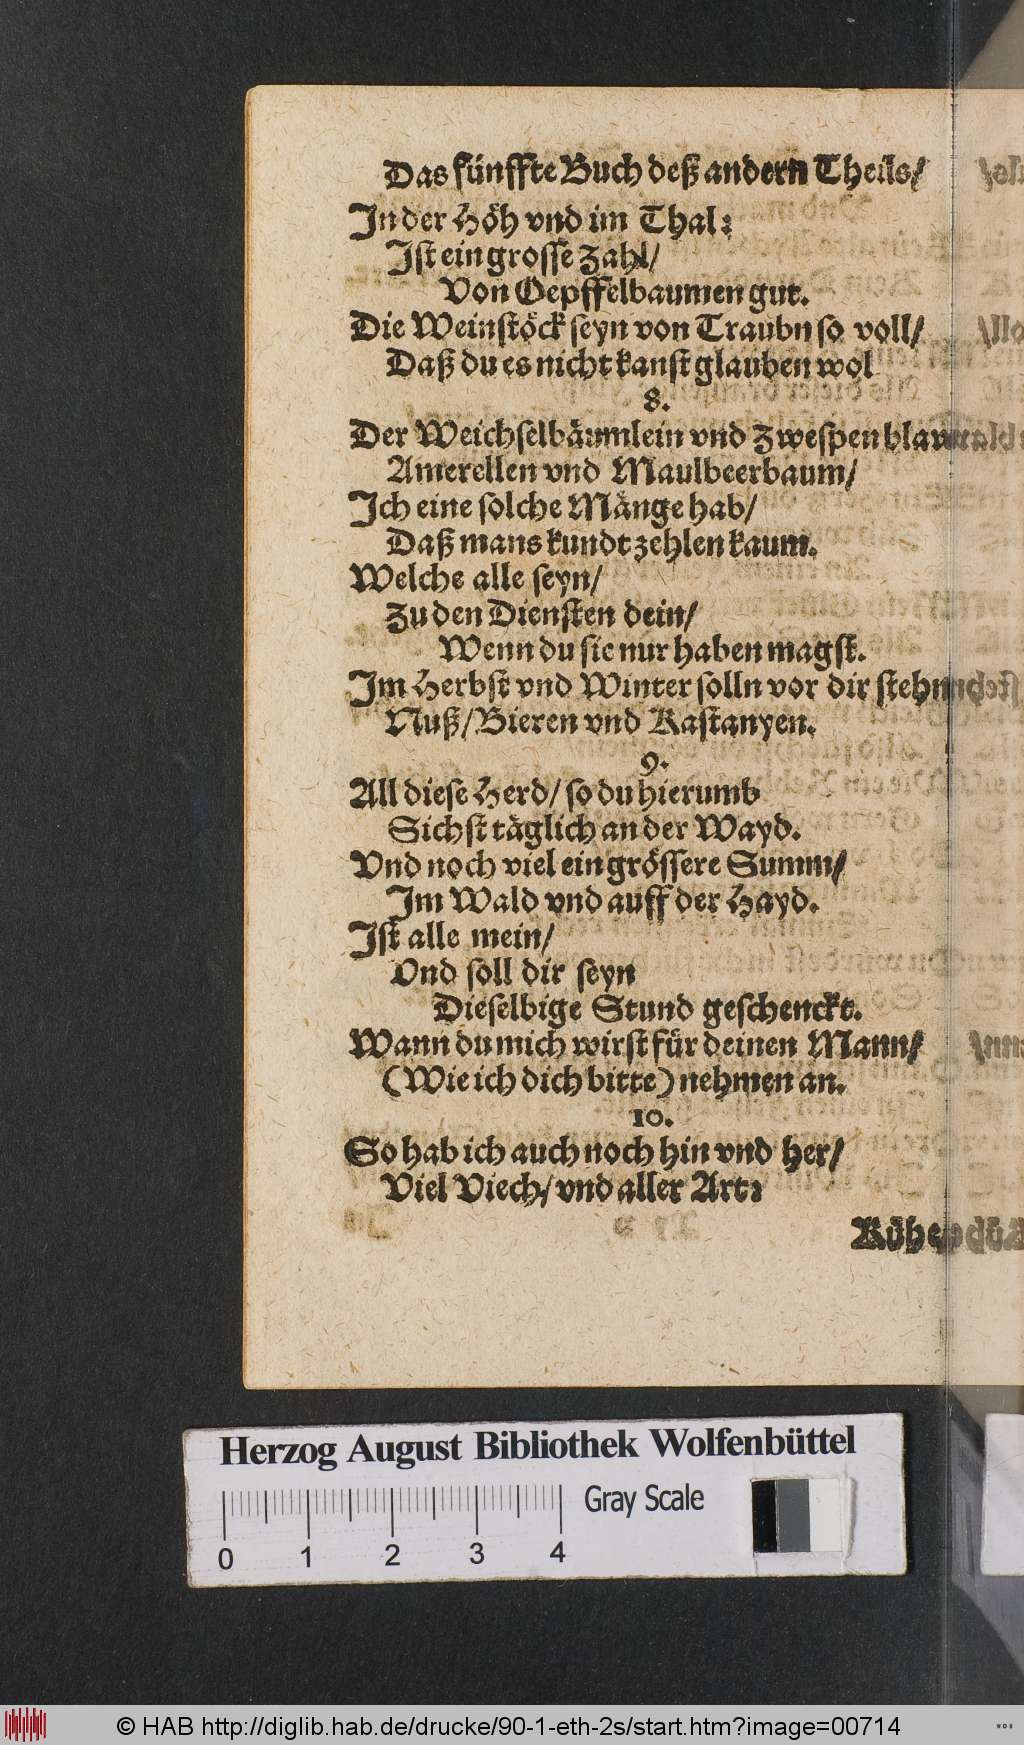 Das fünffte Buch deß andern Theils/
In der Höh vnd im Thal:
Ist ein grosse Zahl/
Von Oepffelbaumen gut.
Die Weinstöck seyn von Traubn so voll/
Daß du es nicht kanst glauben wol
8.
Der Weichselbäumlein vnd Zwespen blaw
Amerellen vnd Maulbeerbaum/
Ich eine solche Mänge hab/
Daß mans kundt zehlen kaum.
Welche alle seyn/
Zu den Diensten dein/
Wenn du sie nur haben magst.
Im Herbst vnd Winter solln vor dir stehn
Nuß/Bieren vnd Kastanyen.
9.
All diese Herd/ so du hierumb
Sichst täglich an der Wayd.
Vnd noch viel ein grössere Summ/
Im Wald vnd auff der Hayd.
Ist alle mein/
Vnd soll dir seyn
Dieselbige Stund geschenckt.
Wann du mich wirst für deinen Mann/
(Wie ich dich bitte) nehmen an.
10.
So hab ich auch noch hin vnd her/
Viel Viech/ vnd aller Art:
Kühe
Herzog August Bibliothek Wolfenbüttel
Gray Scale
0 1 2 3 4
© HAB http://diglib.hab.de/drucke/90-1-eth-2s/start.htm?image=00714